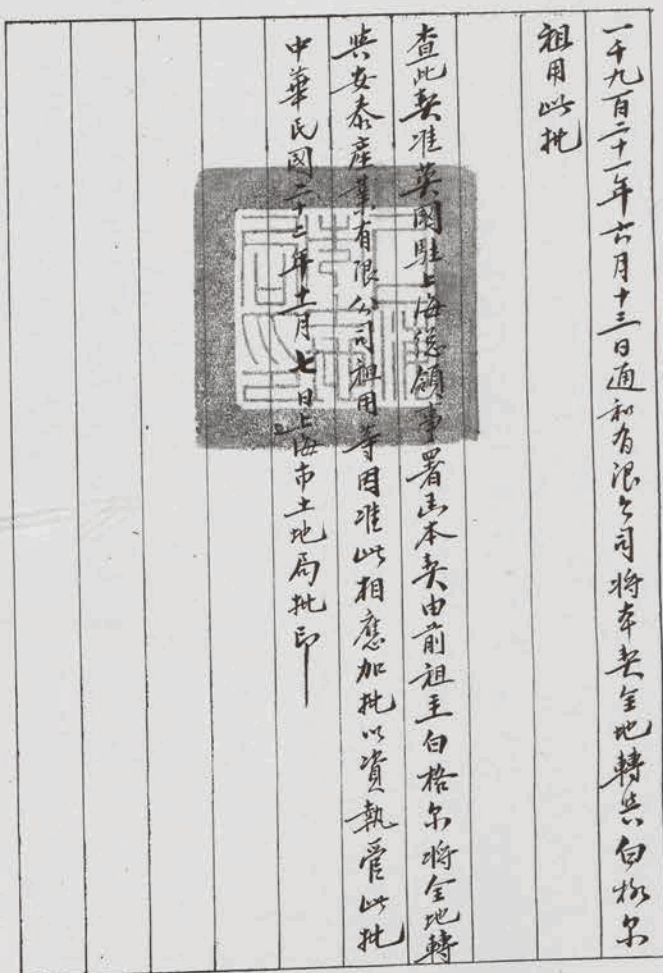 一千九百二十一年六月十三日通和有限公司将本契全地轉與白格尔
租用此批
查此契准英國駐上海總領事署函本契由前租主白格尔将全地轉
與安泰産業有限公司租用等因准此相應加批以資執管此批
中華民國二十二年十一月七日上海市土地局批印